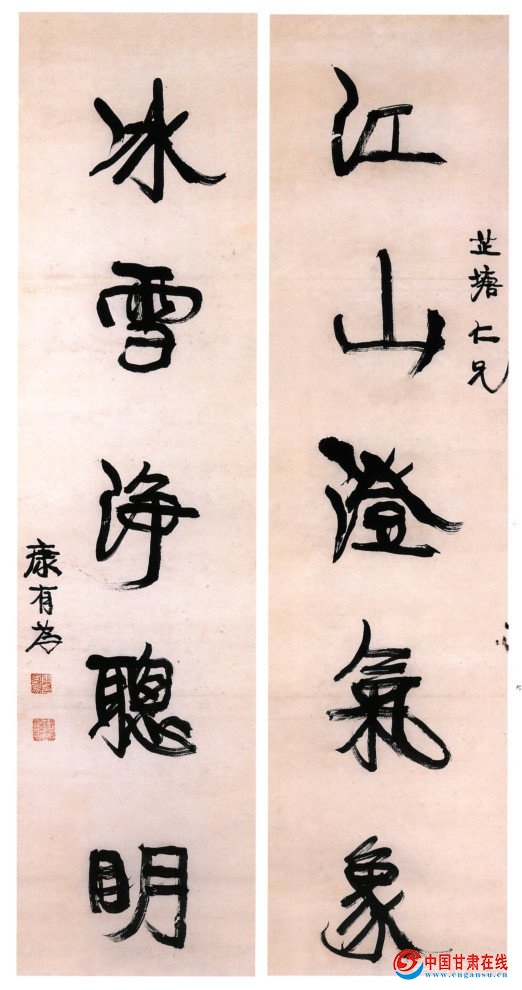 芷塘仁兄
江山澄氣象
冰雪淨聰明
康有為
中国甘肃在线
www.cngansu.cn